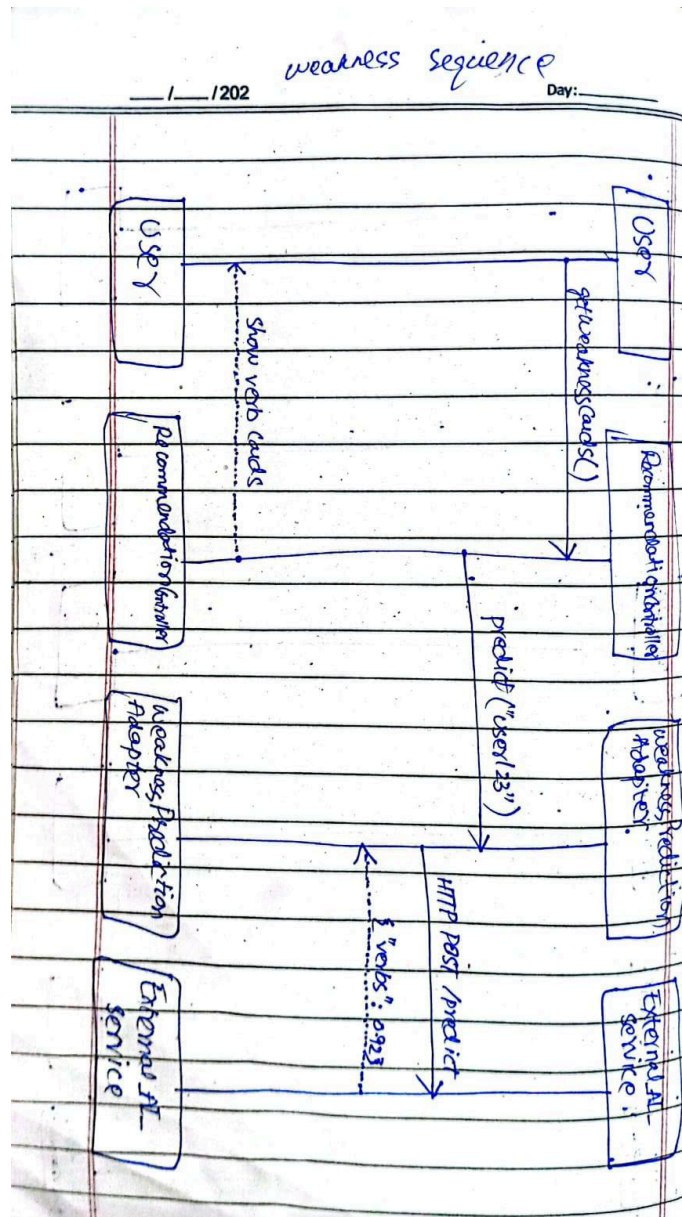 weakness sequence
__/__/202
Day:
User
RecommendationController
WeaknessPrediction
Adapter
External_AI_
service
getWeaknessCards()
predict ("user123")
HTTP POST /predict
{"verbs": 0.92}
show verb cards
User
RecommendationController
WeaknessPrediction
Adapter
External_AI_
service